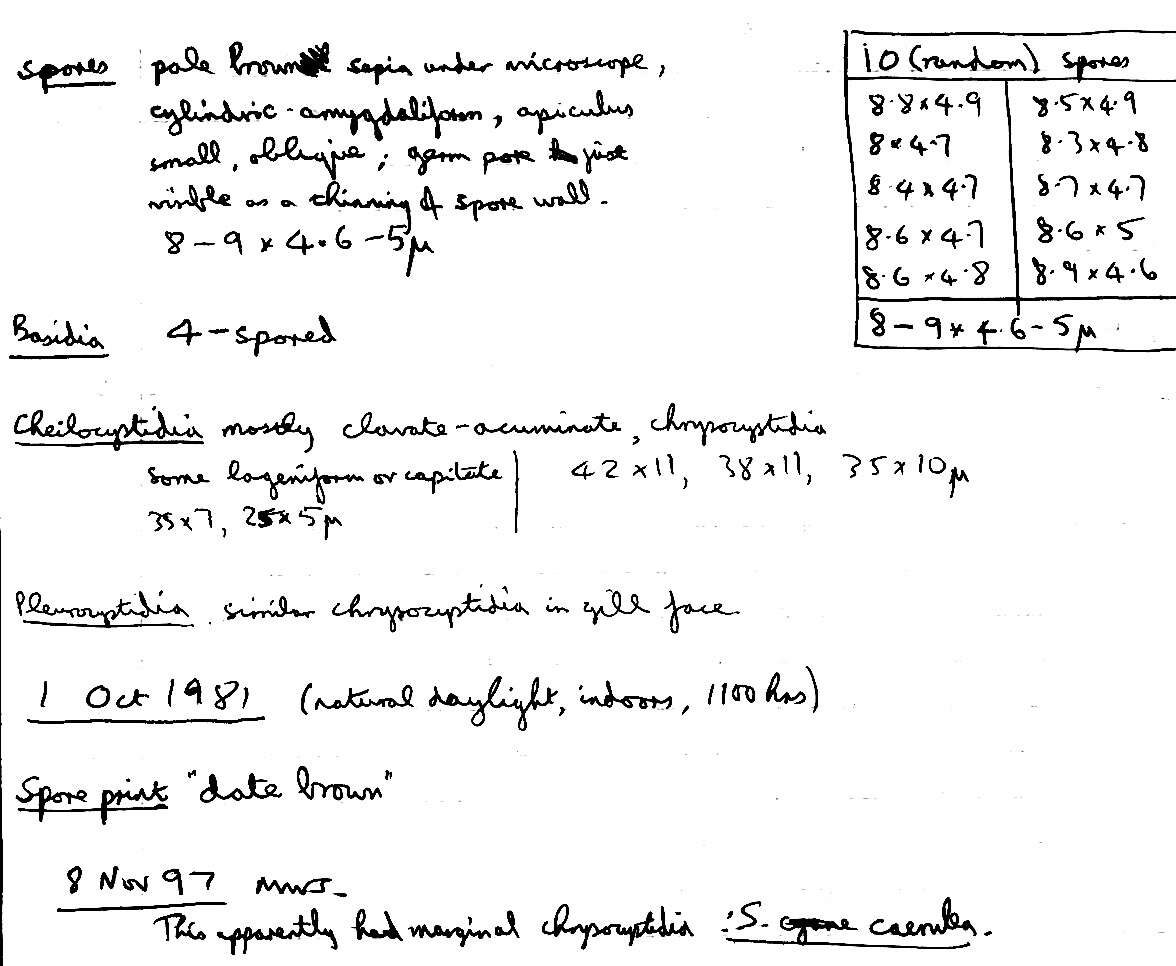 spores pale brown sepia under microscope,
cylindric-amygdaliform, apiculus
small, oblique; germ pore just
visible as a thinning of spore wall.
8-9 x 4.6-5µ
10 (random) spores
8.8x4.9 8.5x4.9
8x4.7 8.3x4.8
8.4x4.7 8.7x4.7
8.6x4.7 8.6x5
8.6x4.8 8.9x4.6
8-9x4.6-5µ
Basidia 4-spored
Cheilocystidia mostly clavate-acuminate, chrysocystidia
some lageniform or capitate 42x11, 38x11, 35x10µ
35x7, 25x5µ
Pleurocystidia similar chrysocystidia in gill face.
1 Oct 1981 (natural daylight, indoors, 1100 hrs)
Spore print "date brown"
8 Nov 97
This apparently had marginal chrysocystidia :S. caerulea.